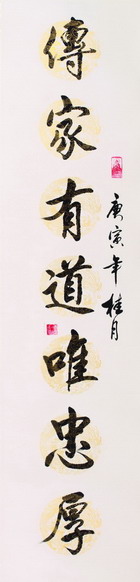 傳家有道唯忠厚
庚寅年桂月